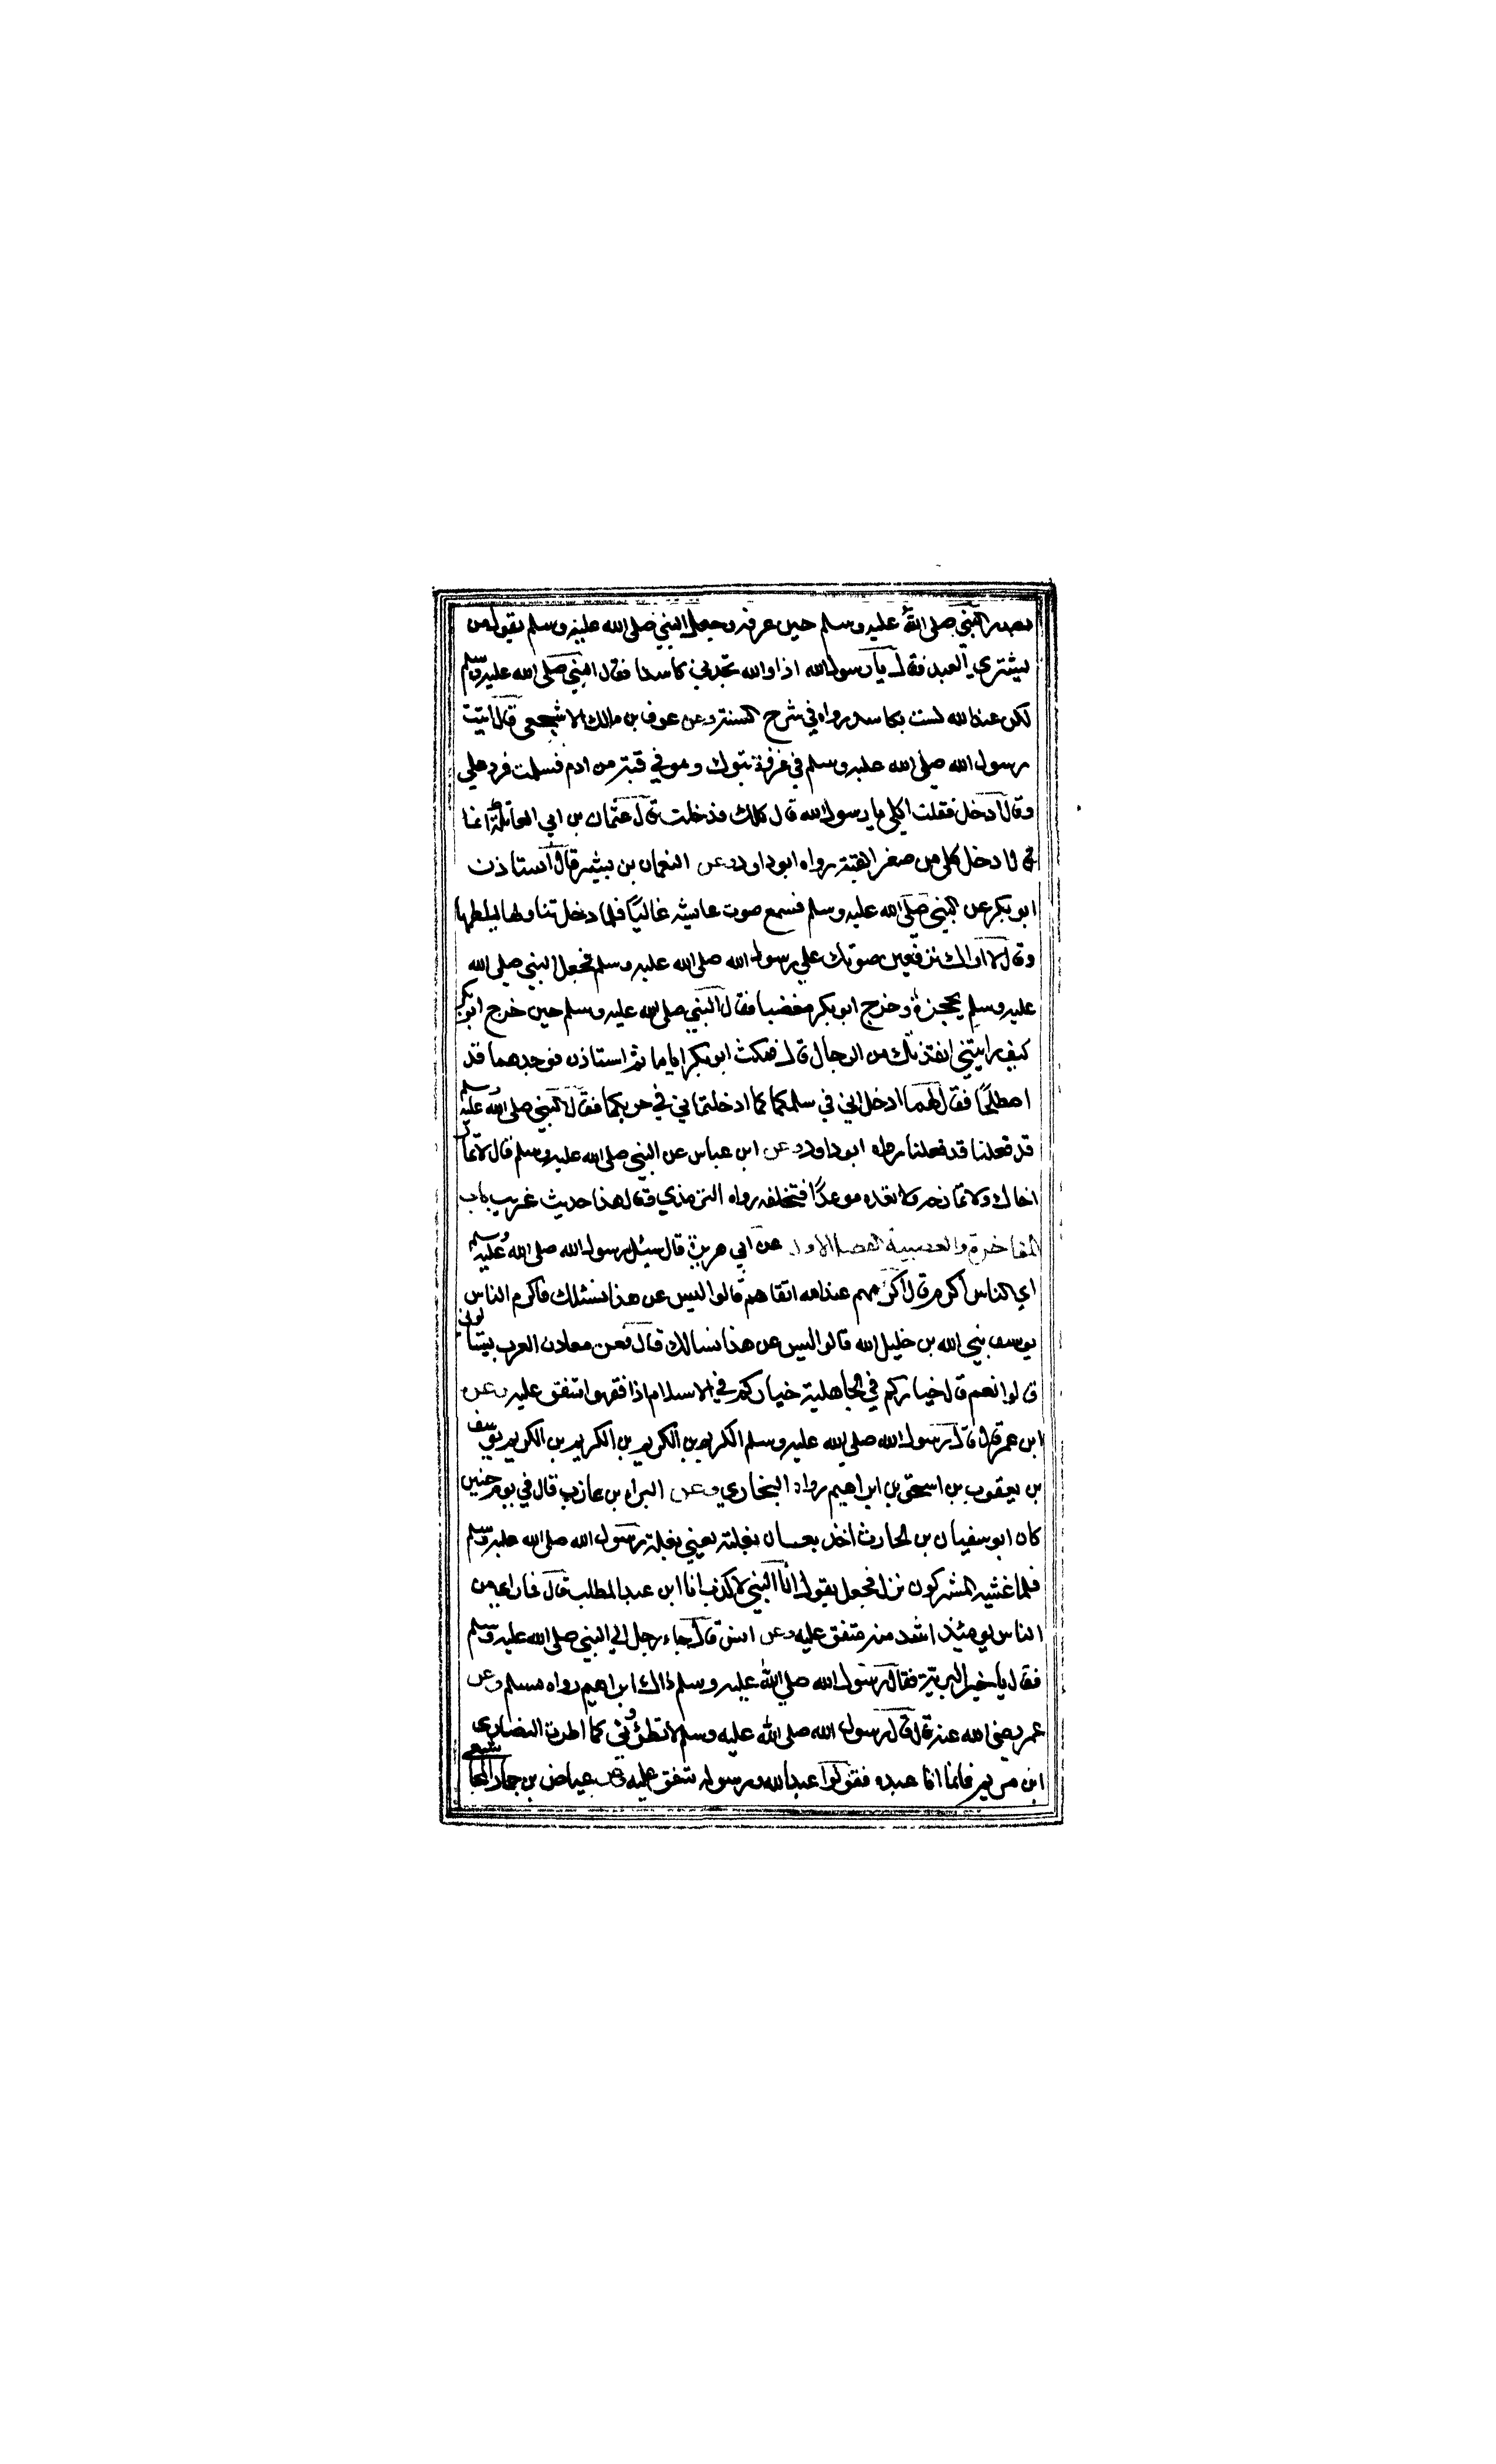 بصدر النبي صلى الله عليه وسلم حين عرفه وجعل النبي صلى الله عليه وسلم يقول من
يشتري العبد فقال يا رسول الله اذا والله تجدني كاسدا فقال النبي صلى الله عليه وسلم
لكن عند الله لست بكاسد رواه في شرح السنة وعن عوف بن مالك الاشجعي قال اتيت
رسول الله صلى الله عليه وسلم في غزوة تبوك وهو في قبة من ادم فسلمت فرد علي
وقال ادخل فقلت اكلي يا رسول الله قال كلك فدخلت قال عثمان بن ابي العاتكة انما
قال ادخل كلي من صغر القبة رواه ابوداود وعن النعمان بن بشير قال استاذن
ابو بكر عن النبي صلى الله عليه وسلم فسمع صوت عايشة عاليا فلما دخل تناولها ليلطمها
وقال لا اراك ترفعين صوتك علي رسول الله صلى الله عليه وسلم فجعل النبي صلى الله
عليه وسلم يحجزه وخرج ابو بكر مغضبا فقال النبي صلى الله عليه وسلم حين خرج ابو بكر
كيف رايتني انقذتك من الرجل قال فمكث ابو بكر اياما ثم استاذن فوجدهما قد
اصطلحا فقال لهما ادخلاني في سلمكما كما ادخلتماني في حربكما فقال النبي صلى الله عليه وسلم
قد فعلنا قد فعلنا رواه ابوداود وعن ابن عباس عن النبي صلى الله عليه وسلم قال لا تمار
اخاك ولا تمازحه ولا تعده موعدا فتخلفه رواه الترمذي وقال هذا حديث غريب باب
المفاخرة والعصبية الفصل الاول عن ابي هريرة قال سئل رسول الله صلى الله عليه وسلم
اي الناس اكرم قال اكرمهم عند الله اتقاهم قالوا ليس عن هذا نسئلك فاكرم الناس
يوسف نبي الله بن خليل الله قالوا ليس عن هذا نسالك قال فعن معادن العرب تسالوني
قالوا نعم قال خياركم في الجاهلية خياركم في الاسلام اذا فقهوا متفق عليه وعن
ابن عمر قال قال رسول الله صلى الله عليه وسلم الكريم بن الكريم بن الكريم بن الكريم يوسف
بن يعقوب بن اسحق بن ابراهيم رواه البخاري وعن البراء بن عازب قال في يوم حنين
كان ابو سفيان بن الحارث اخذ بعنان بغلته يعني بغلة رسول الله صلى الله عليه وسلم
فلما غشيه المشركون نزل فجعل يقول انا النبي لا كذب انا ابن عبد المطلب قال فما راي من
الناس يومئذ اشد منه متفق عليه وعن انس قال جاء رجل الي النبي صلى الله عليه وسلم
فقال يا خير البرية فقال رسول الله صلى الله عليه وسلم ذاك ابراهيم رواه مسلم وعن
عمر رضي الله عنه قال قال رسول الله صلى الله عليه وسلم لا تطروني كما اطرت النصاري
ابن مريم فانما انا عبده فقولوا عبد الله ورسوله متفق عليه وعن عياض بن حمار المجاشعي